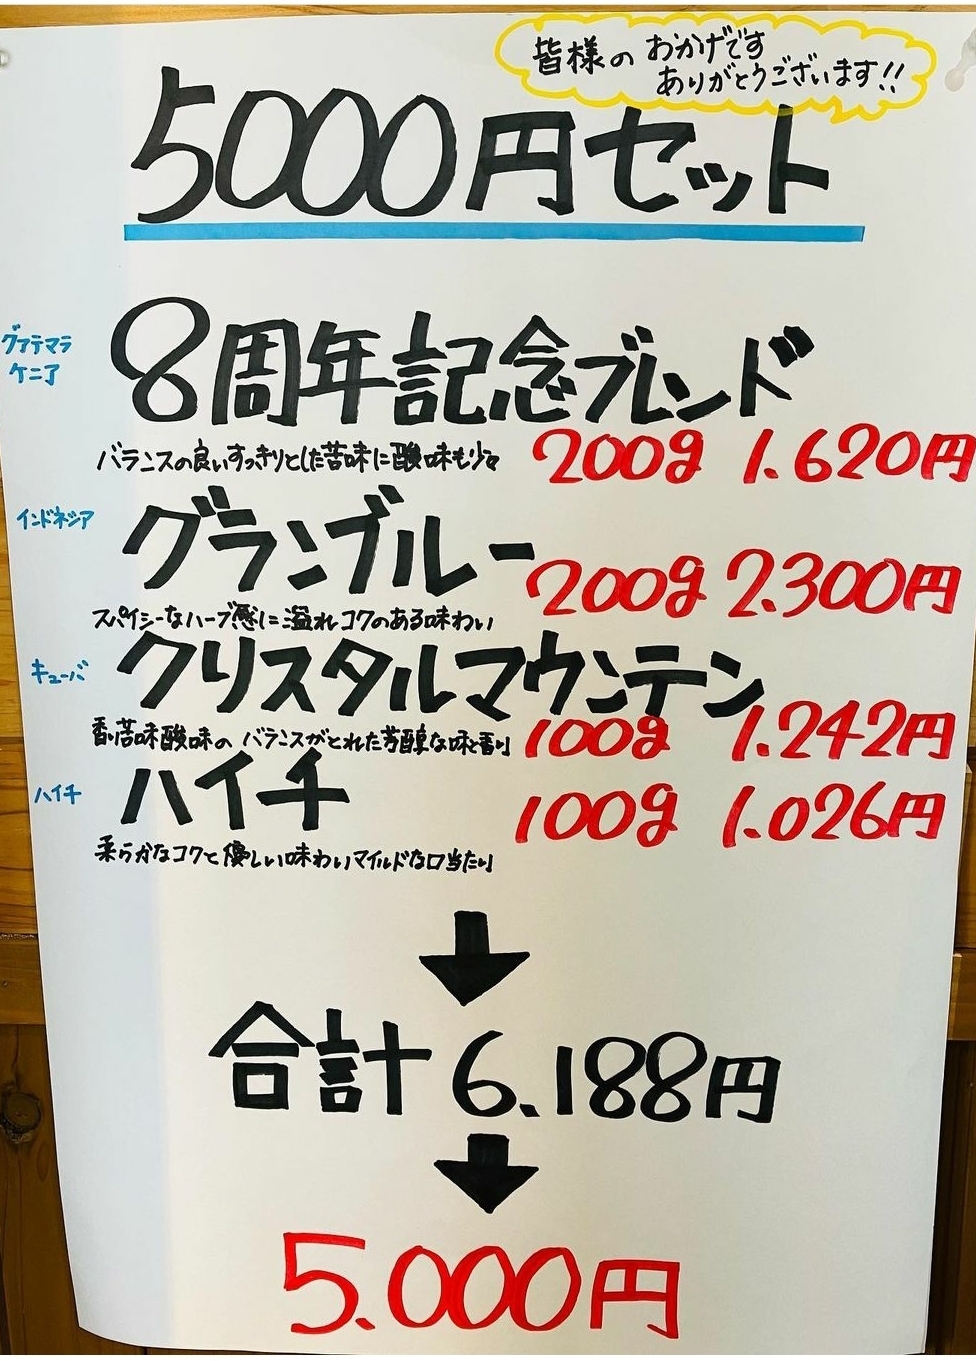 皆様の おかげです
ありがとうございます!!
5000円セット
グァテマラ
ケニア
8周年記念ブレンド
バランスの良いすっきりとした苦味に酸味も少々
200g 1.620円
インドネシア
グランブルー
200g 2.300円
スパイシーなハーブ感に溢れコクのある味わい
キューバ
クリスタルマウンテン
香り苦味酸味の バランスがとれた芳醇な味と香り
100g 1.242円
ハイチ
ハイチ
100g 1.026円
柔らかなコクと優しい味わいマイルドな口当たり
合計 6.188円
5.000円